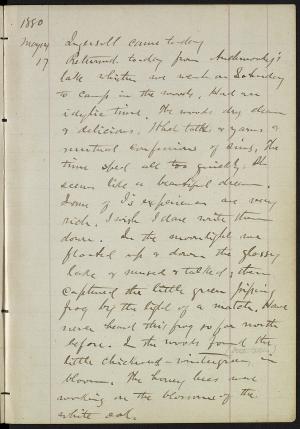 1880
May 17
Ingersoll came to-day
Returned to-day from
lake whither we went on Saturday
to camp in the woods. Had an
idyllic time. The woods dry clean
& delicious. Had talks & yarns &
mutual confessions of sins. The
time sped all too quickly. It
seems like a beautiful dream.
Some of I's experiences are very
rich. I wish I dare write them
down. In the moonlight we
floated up & down the glassy
lake & mused & talked; then
captured the little green piping
frog by the light of a match. Have
never heard this frog so far north
before. In the woods found the
little chickweed-wintergreen in
bloom. The honey bees were
working on the blossoms of the
white oak.